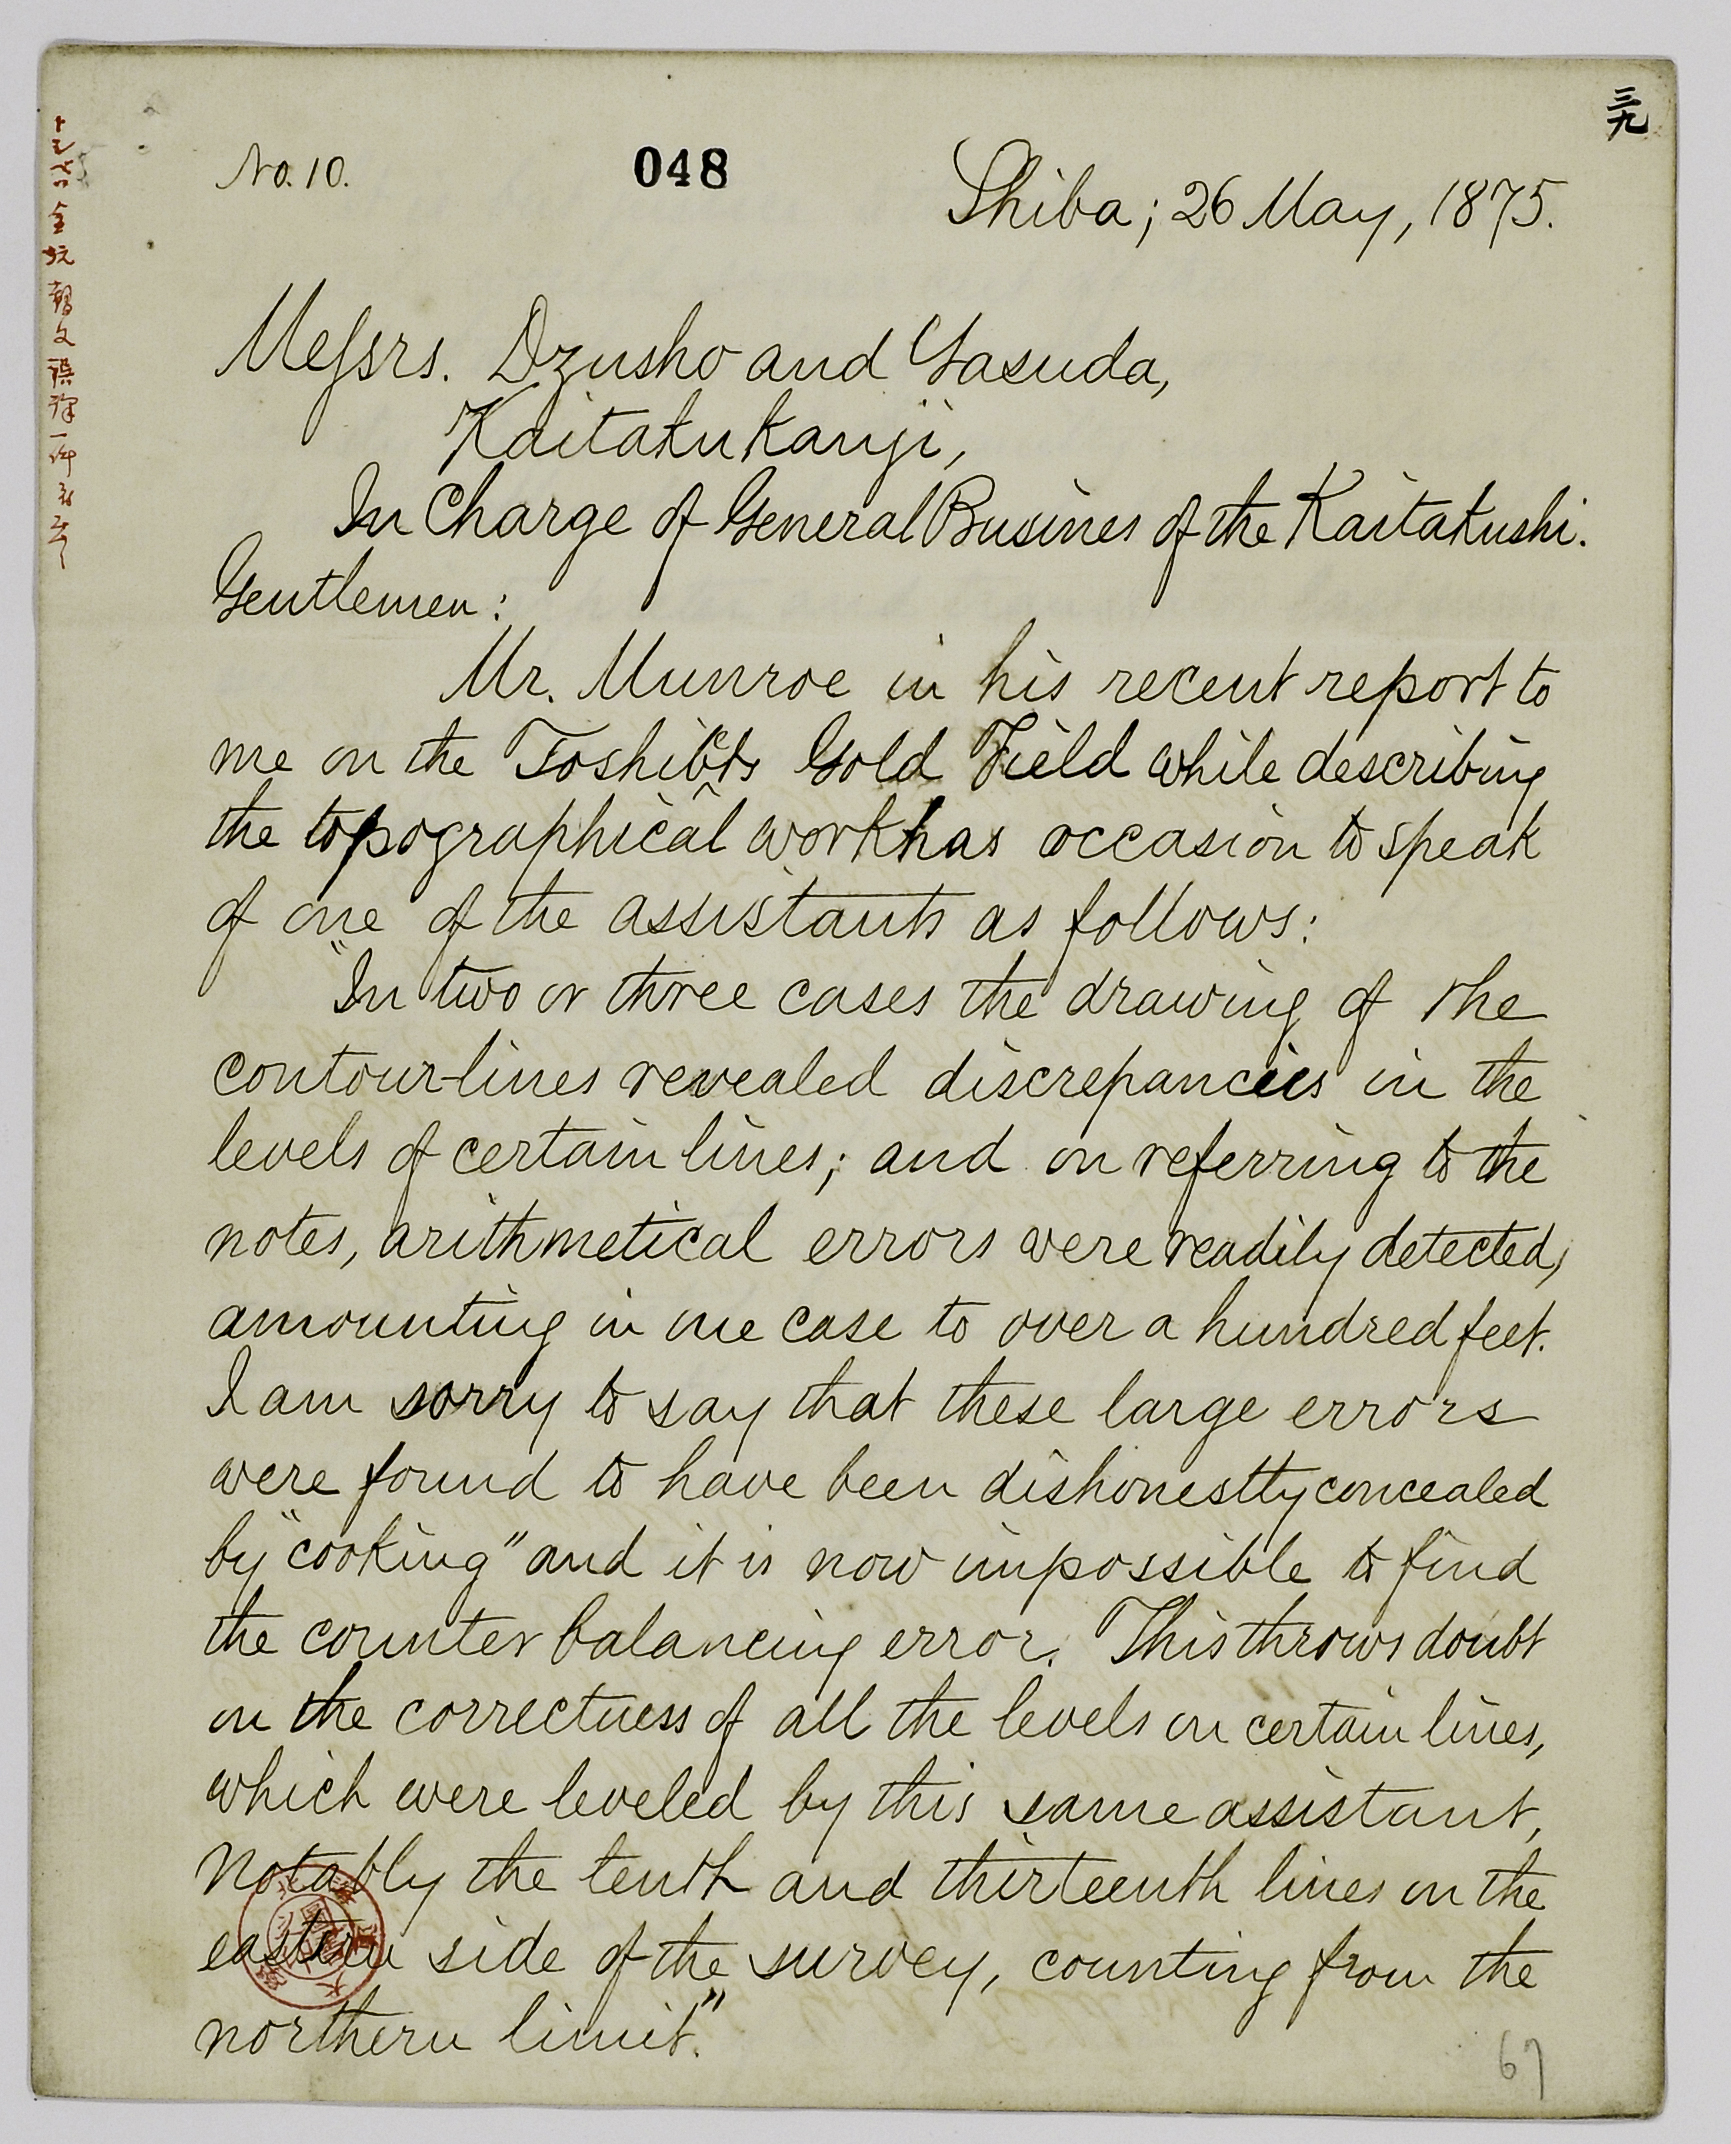 三九
No. 10.
048
Shiba; 26 May, 1875.
Messrs. Dzusho and Yasuda,
Kaitakukanji,
In Charge of General Busines of the Kaitakushi.
Gentlemen:
Mr. Munroe in his recent report to
me on the Toshibts Gold Field while describing
the topographical work has occasion to speak
of one of the assistants as follows:
"In two or three cases the drawing of the
contour-lines revealed discrepancies in the
levels of certain lines; and on referring to the
notes, arithmetical errors were readily detected,
amounting in one case to over a hundred feet.
I am sorry to say that these large errors
were found to have been dishonestly concealed
by "cooking" and it is now impossible to find
the counter balancing error. This throws doubt
on the correctness of all the levels on certain lines,
which were leveled by this same assistant,
notably the tenth and thirteenth lines on the
eastern side of the survey, counting from the
northern limit."
67